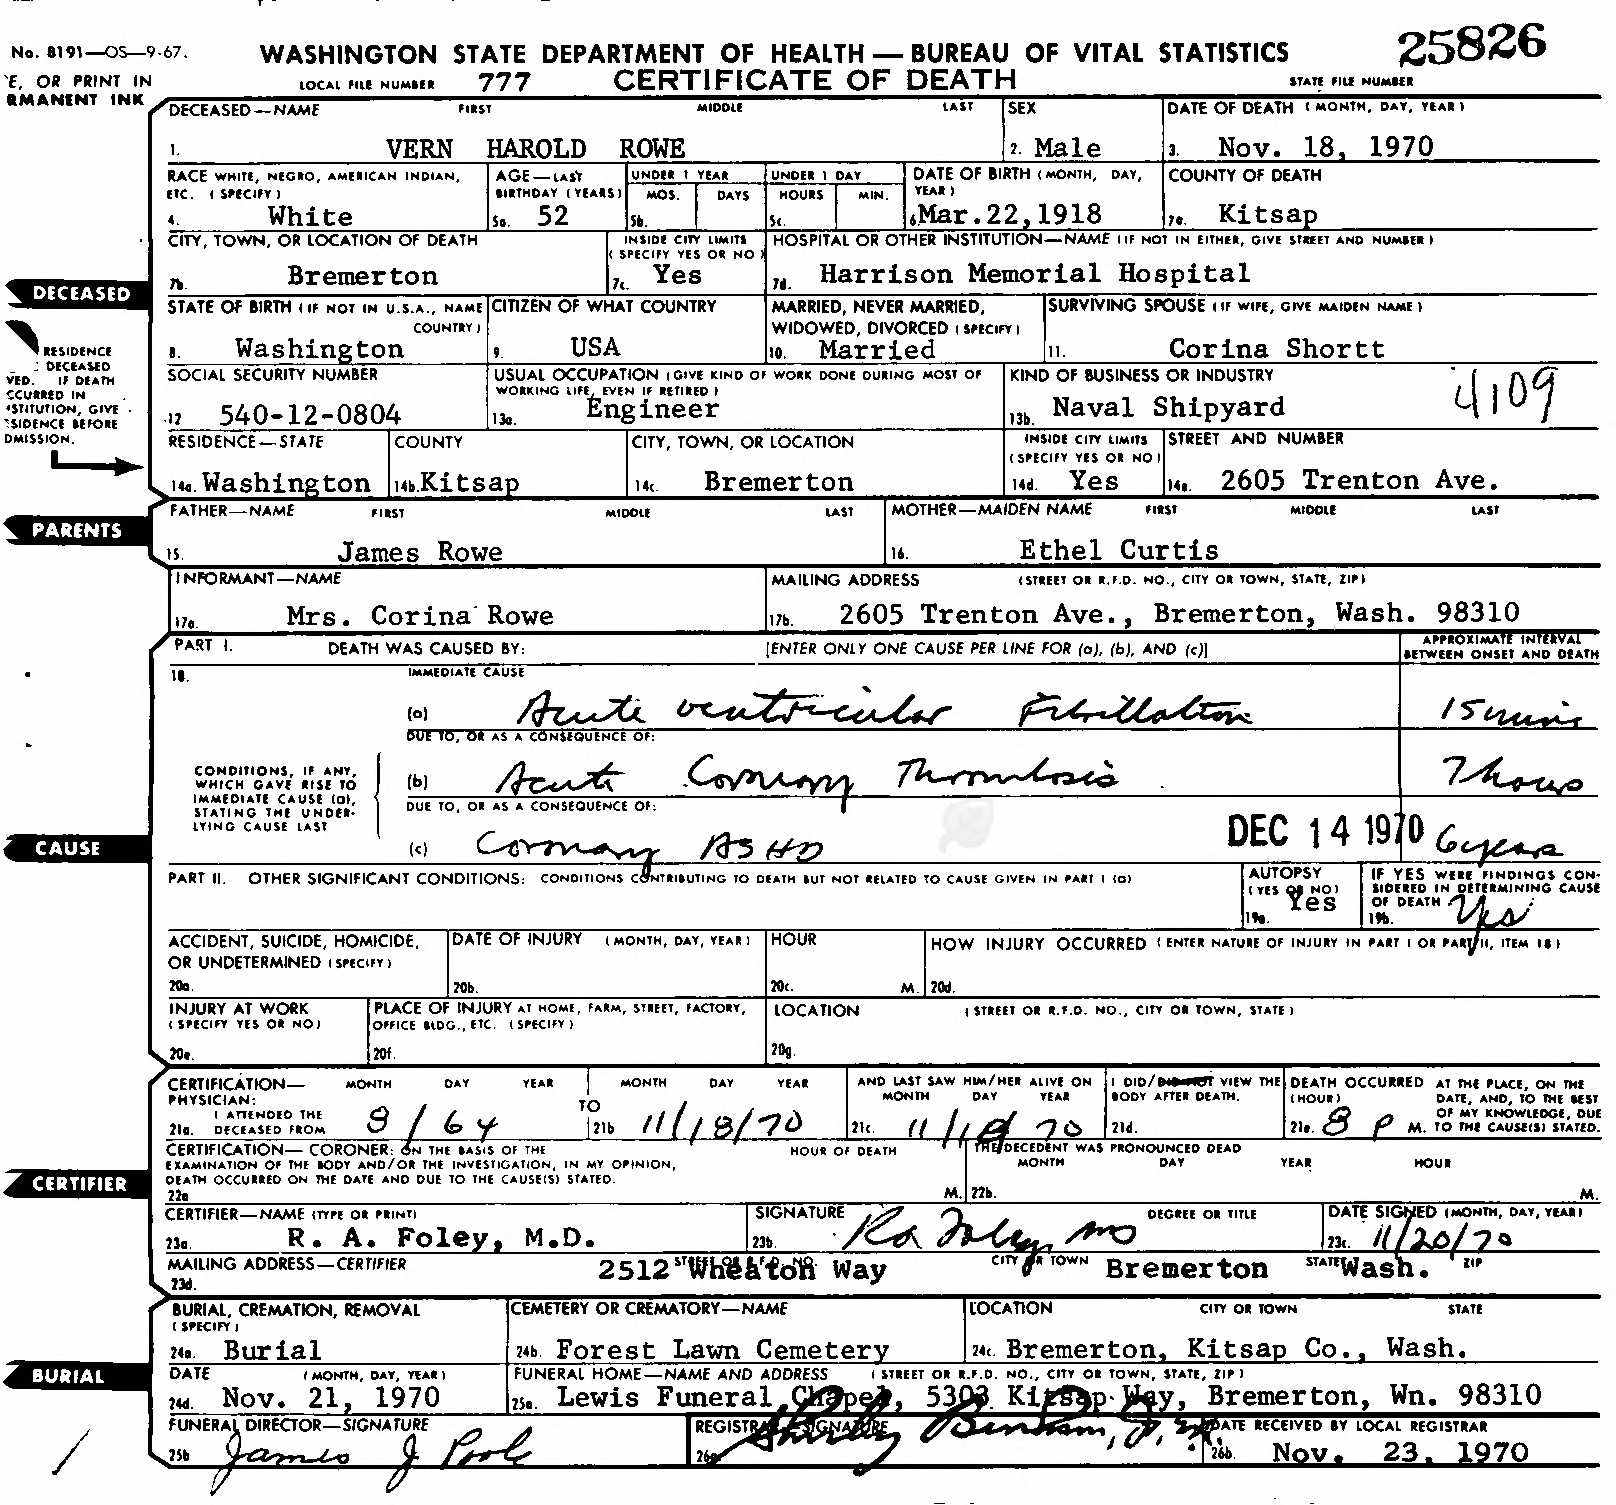 No. 8191—OS—9-67.
WASHINGTON STATE DEPARTMENT OF HEALTH — BUREAU OF VITAL STATISTICS
25826
'E, OR PRINT IN
RMANENT INK
LOCAL FILE NUMBER 777 CERTIFICATE OF DEATH STATE FILE NUMBER
DECEASED—NAME FIRST MIDDLE LAST SEX DATE OF DEATH (MONTH, DAY, YEAR)
1. VERN HAROLD ROWE 2. Male 3. Nov. 18, 1970
RACE WHITE, NEGRO, AMERICAN INDIAN, AGE—LAST UNDER 1 YEAR UNDER 1 DAY DATE OF BIRTH (MONTH, DAY, COUNTY OF DEATH
ETC. (SPECIFY) BIRTHDAY (YEARS) MOS. DAYS HOURS MIN. YEAR)
4. White 5a. 52 5b. 5c. 6. Mar.22,1918 7a. Kitsap
CITY, TOWN, OR LOCATION OF DEATH INSIDE CITY LIMITS HOSPITAL OR OTHER INSTITUTION—NAME (IF NOT IN EITHER, GIVE STREET AND NUMBER)
(SPECIFY YES OR NO)
7b. Bremerton 7c. Yes 7d. Harrison Memorial Hospital
DECEASED
STATE OF BIRTH (IF NOT IN U.S.A., NAME CITIZEN OF WHAT COUNTRY MARRIED, NEVER MARRIED, SURVIVING SPOUSE (IF WIFE, GIVE MAIDEN NAME)
COUNTRY) WIDOWED, DIVORCED (SPECIFY)
8. Washington 9. USA 10. Married 11. Corina Shortt
RESIDENCE
DECEASED
VED. IF DEATH
CCURRED IN
STITUTION, GIVE
SIDENCE BEFORE
DMISSION.
SOCIAL SECURITY NUMBER USUAL OCCUPATION (GIVE KIND OF WORK DONE DURING MOST OF KIND OF BUSINESS OR INDUSTRY
WORKING LIFE, EVEN IF RETIRED)
12 540-12-0804 13a. Engineer 13b. Naval Shipyard 4109
RESIDENCE—STATE COUNTY CITY, TOWN, OR LOCATION INSIDE CITY LIMITS STREET AND NUMBER
(SPECIFY YES OR NO)
14a. Washington 14b. Kitsap 14c. Bremerton 14d. Yes 14e. 2605 Trenton Ave.
PARENTS
FATHER—NAME FIRST MIDDLE LAST MOTHER—MAIDEN NAME FIRST MIDDLE LAST
15. James Rowe 16. Ethel Curtis
INFORMANT—NAME MAILING ADDRESS (STREET OR R.F.D. NO., CITY OR TOWN, STATE, ZIP)
17a. Mrs. Corina Rowe 17b. 2605 Trenton Ave., Bremerton, Wash. 98310
PART I. DEATH WAS CAUSED BY: [ENTER ONLY ONE CAUSE PER LINE FOR (a), (b), AND (c)] APPROXIMATE INTERVAL
BETWEEN ONSET AND DEATH
18. IMMEDIATE CAUSE
(a) Acute ventricular Fibrillation 15 mins
DUE TO, OR AS A CONSEQUENCE OF:
CONDITIONS, IF ANY,
WHICH GAVE RISE TO
IMMEDIATE CAUSE (a),
STATING THE UNDER-
LYING CAUSE LAST
(b) Acute Coronary Thrombosis 7 hours
DUE TO, OR AS A CONSEQUENCE OF:
CAUSE
(c) Coronary ASHD DEC 14 1970 6 years
PART II. OTHER SIGNIFICANT CONDITIONS: CONDITIONS CONTRIBUTING TO DEATH BUT NOT RELATED TO CAUSE GIVEN IN PART I (a) AUTOPSY IF YES WERE FINDINGS CON-
(YES OR NO) SIDERED IN DETERMINING CAUSE
OF DEATH
19a. Yes 19b. Yes
ACCIDENT, SUICIDE, HOMICIDE, DATE OF INJURY (MONTH, DAY, YEAR) HOUR HOW INJURY OCCURRED (ENTER NATURE OF INJURY IN PART I OR PART II, ITEM 18)
OR UNDETERMINED (SPECIFY)
20a. 20b. 20c. M. 20d.
INJURY AT WORK PLACE OF INJURY AT HOME, FARM, STREET, FACTORY, LOCATION (STREET OR R.F.D. NO., CITY OR TOWN, STATE)
(SPECIFY YES OR NO) OFFICE BLDG., ETC. (SPECIFY)
20e. 20f. 20g.
CERTIFICATION— MONTH DAY YEAR MONTH DAY YEAR AND LAST SAW HIM/HER ALIVE ON I DID/DID NOT VIEW THE DEATH OCCURRED AT THE PLACE, ON THE
PHYSICIAN: TO MONTH DAY YEAR BODY AFTER DEATH. (HOUR) DATE, AND, TO THE BEST
I ATTENDED THE OF MY KNOWLEDGE, DUE
21a. DECEASED FROM 8 / 64 21b 11/18/70 21c. 11/18 70 21d. 21e. 8 P M. TO THE CAUSE(S) STATED.
CERTIFICATION— CORONER: ON THE BASIS OF THE HOUR OF DEATH THE DECEDENT WAS PRONOUNCED DEAD
EXAMINATION OF THE BODY AND/OR THE INVESTIGATION, IN MY OPINION, MONTH DAY YEAR HOUR
DEATH OCCURRED ON THE DATE AND DUE TO THE CAUSE(S) STATED.
22a M. 22b. M.
CERTIFIER
CERTIFIER—NAME (TYPE OR PRINT) SIGNATURE DEGREE OR TITLE DATE SIGNED (MONTH, DAY, YEAR)
23a. R. A. Foley, M.D. 23b. R A Foley MD 23c. 11/20/70
MAILING ADDRESS—CERTIFIER STREET OR R.F.D. NO. CITY OR TOWN STATE ZIP
23d. 2512 Wheaton Way Bremerton Wash.
BURIAL, CREMATION, REMOVAL CEMETERY OR CREMATORY—NAME LOCATION CITY OR TOWN STATE
(SPECIFY)
24a. Burial 24b. Forest Lawn Cemetery 24c. Bremerton, Kitsap Co., Wash.
BURIAL
DATE (MONTH, DAY, YEAR) FUNERAL HOME—NAME AND ADDRESS (STREET OR R.F.D. NO., CITY OR TOWN, STATE, ZIP)
24d. Nov. 21, 1970 25a. Lewis Funeral Chapel, 5303 Kitsap Way, Bremerton, Wn. 98310
FUNERAL DIRECTOR—SIGNATURE REGISTRAR—SIGNATURE DATE RECEIVED BY LOCAL REGISTRAR
25b James J Poole 26a. 26b. Nov. 23, 1970